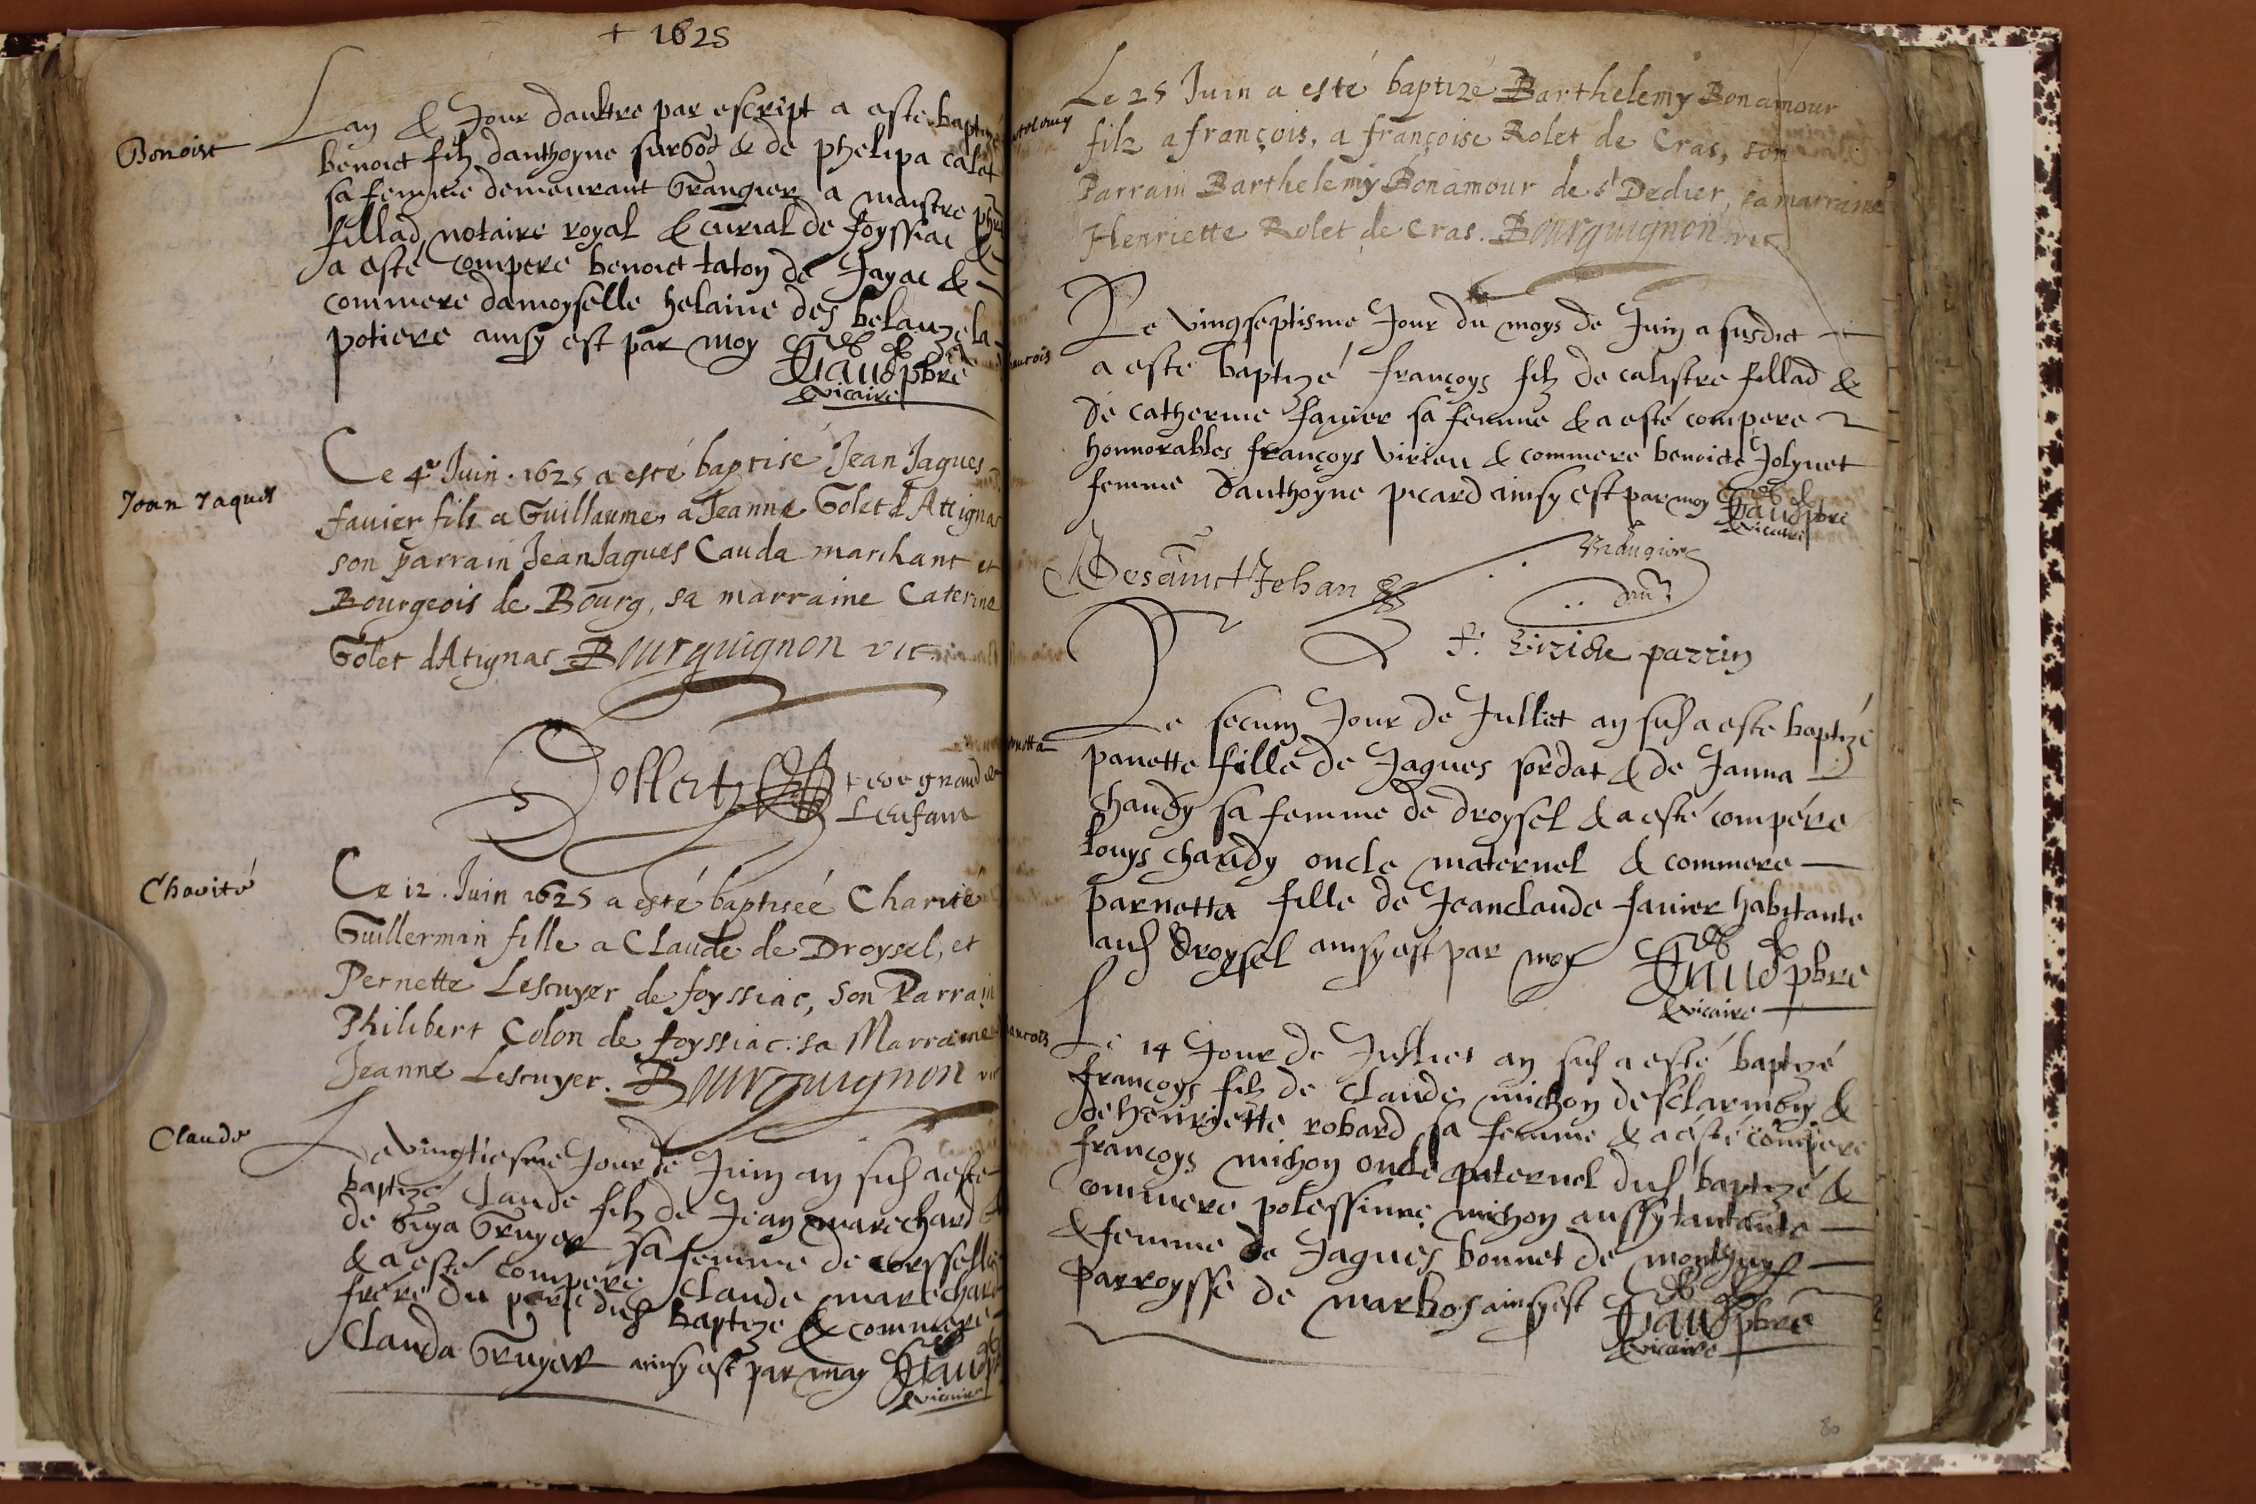 + 1625
Benoist
Lan & Jour daultre par escript a este baptizé
benoict filz danthoyne surbod & de phelipa calat
sa femme demeurant Grangier a maistre
fillad notaire royal & curial de foyssiac &
a esté compere benoict taton de Jayac &
commere damoyselle helaine des belauze la
potiere ainsy est par moy
pbre
& vicaire
Jean Jaques
Ce 4e Juin. 1625 a esté baptisé Jean Jaques
favier fils a Guillaume, a Jeanne Golet d Attignac
son parrain Jean Jaques Cauda marchant et
Bourgeois de Bourg, sa marraine Caterine
Golet dAtignac Bourguignon vic
Lenfant
Charité
Ce 12. Juin 1625 a esté baptiseé Charité
Guillermin fille a Claude de Droysel, et
Pernette Lescuyer de foyssiac, son Parrain
Philibert Colon de foyssiac: sa Marraine
Jeanne Lescuyer. Bourguignon vic
Claude
Le vingtiesme Jour de Juin an susd a este
baptize Claude filz de Jean marechard &
de Guya Gruyer sa femme de
& a esté compere Claude marechard
frere du pere dud baptize & commere
Clauda Gruyer ainsy est par moy
& vicaire
Le 25 Juin a esté baptizé Barthelemy Bonamour
filz a françois, a françoise Rolet de Cras, son
Parrain Barthelemy Bonamour de st Dedier, sa marraine
Henriette Rolet de Cras. Bourguignon vic
Le vingseptisme Jour du moys de Juin a susdict
a esté baptizé françoys filz de calistre fillad &
de catherine favier sa femme & a esté compere
honnorables françoys virieu & commere benoicte Jolynet
femme danthoyne picard ainsy est par moy
pbre
& vicaire
Desainct Jehan
parrin
Le secund Jour de Julliet an susd a este baptizé
panette fille de Jaques sordat & de Janna
chaudy sa femme de droysel & a esté compére
louys chaudy oncle maternel & commere
parnetta fille de Jeanclaude favier habitante
aud droysel ainsy est par moy
pbre
& vicaire
Le 14 Jour de Julliet an susd a esté baptizé
françoys filz de Claude michon &
de henryette robard sa femme & a esté compere
françoys michon oncle paternel dud baptizé &
commere polessinne michon aussy tantante
& femme de Jaques bonnet de
parroysse de marbos ainsy est
pbre
& vicaire
80